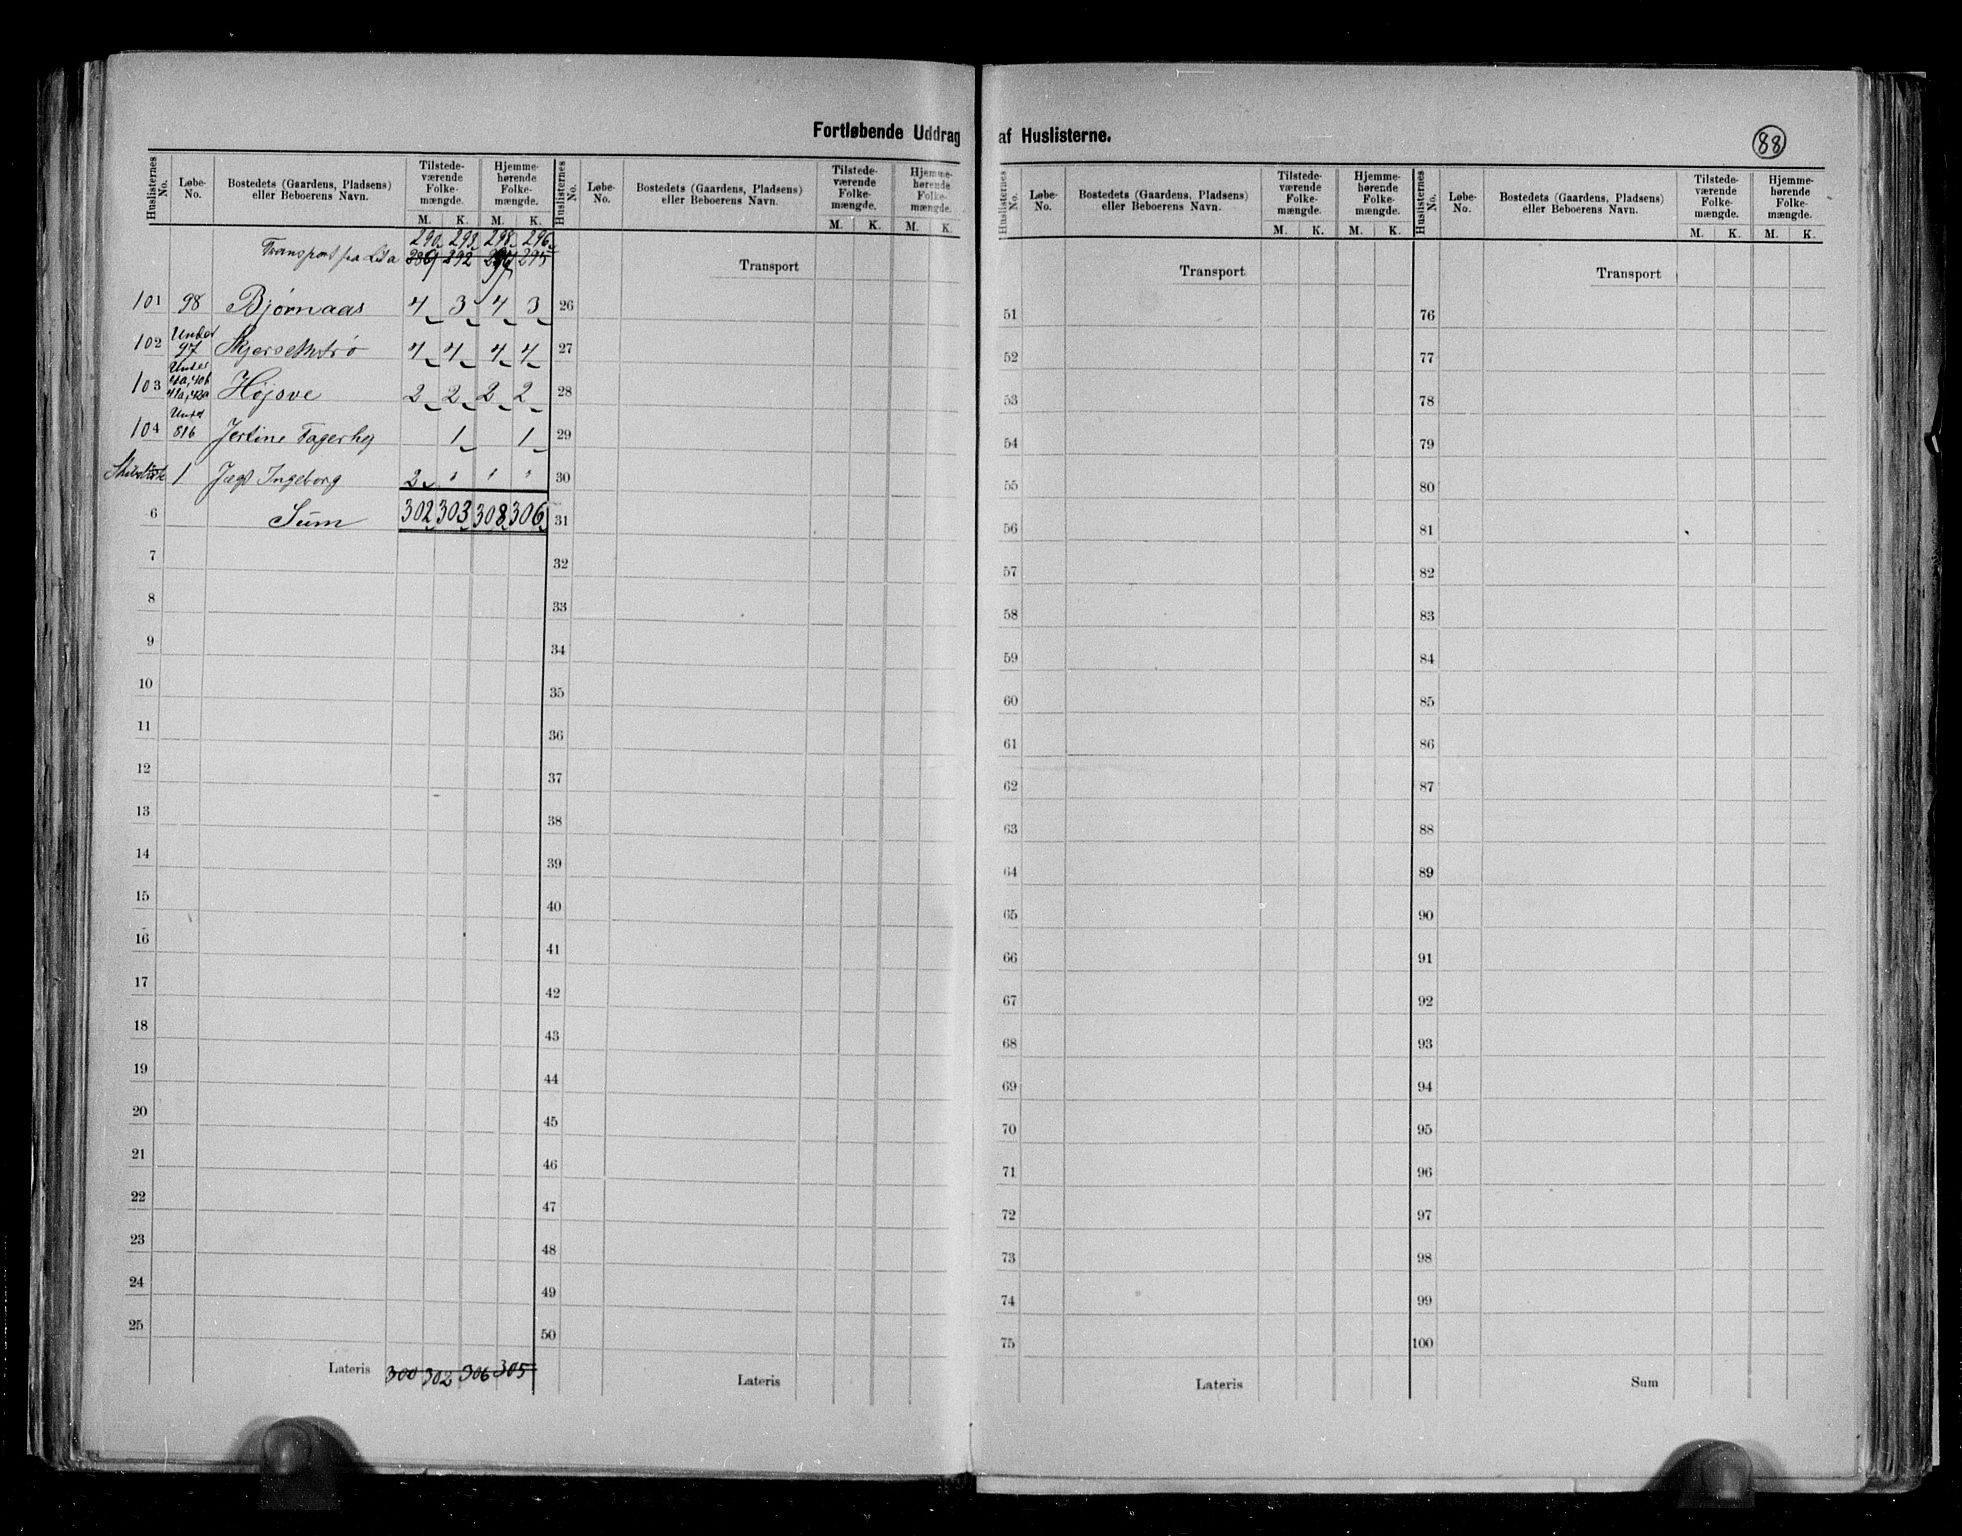 Fortløbende Uddrag af Huslisterne.
88
Huslisternes No. | Løbe-No. | Bostedets (Gaardens, Pladsens) eller Beboerens Navn. | Tilstedeværende Folkemængde. M. K. | Hjemmehørende Folkemængde. M. K.
Transport fra 290 293 298 296
292 295
101 98 Bjørnaas 4 3 4 3
102 Under 97 4 4 4 4
103 Under 41a, 42a Højsve 2 2 2 2
104 Under 816 Jertine Fagerhg 1 1
1 Jægt Ingeborg 2 " " "
6 Sum 302 303 308 306
7
8
9
10
11
12
13
14
15
16
17
18
19
20
21
22
23
24
25
Lateris 300 302 306 305
Huslisternes No. | Løbe-No. | Bostedets (Gaardens, Pladsens) eller Beboerens Navn. | Tilstedeværende Folkemængde. M. K. | Hjemmehørende Folkemængde. M. K.
Transport
26
27
28
29
30
31
32
33
34
35
36
37
38
39
40
41
42
43
44
45
46
47
48
49
50
Lateris
Huslisternes No. | Løbe-No. | Bostedets (Gaardens, Pladsens) eller Beboerens Navn. | Tilstedeværende Folkemængde. M. K. | Hjemmehørende Folkemængde. M. K.
Transport
51
52
53
54
55
56
57
58
59
60
61
62
63
64
65
66
67
68
69
70
71
72
73
74
75
Lateris
Huslisternes No. | Løbe-No. | Bostedets (Gaardens, Pladsens) eller Beboerens Navn. | Tilstedeværende Folkemængde. M. K. | Hjemmehørende Folkemængde. M. K.
Transport
76
77
78
79
80
81
82
83
84
85
86
87
88
89
90
91
92
93
94
95
96
97
98
99
100
Sum